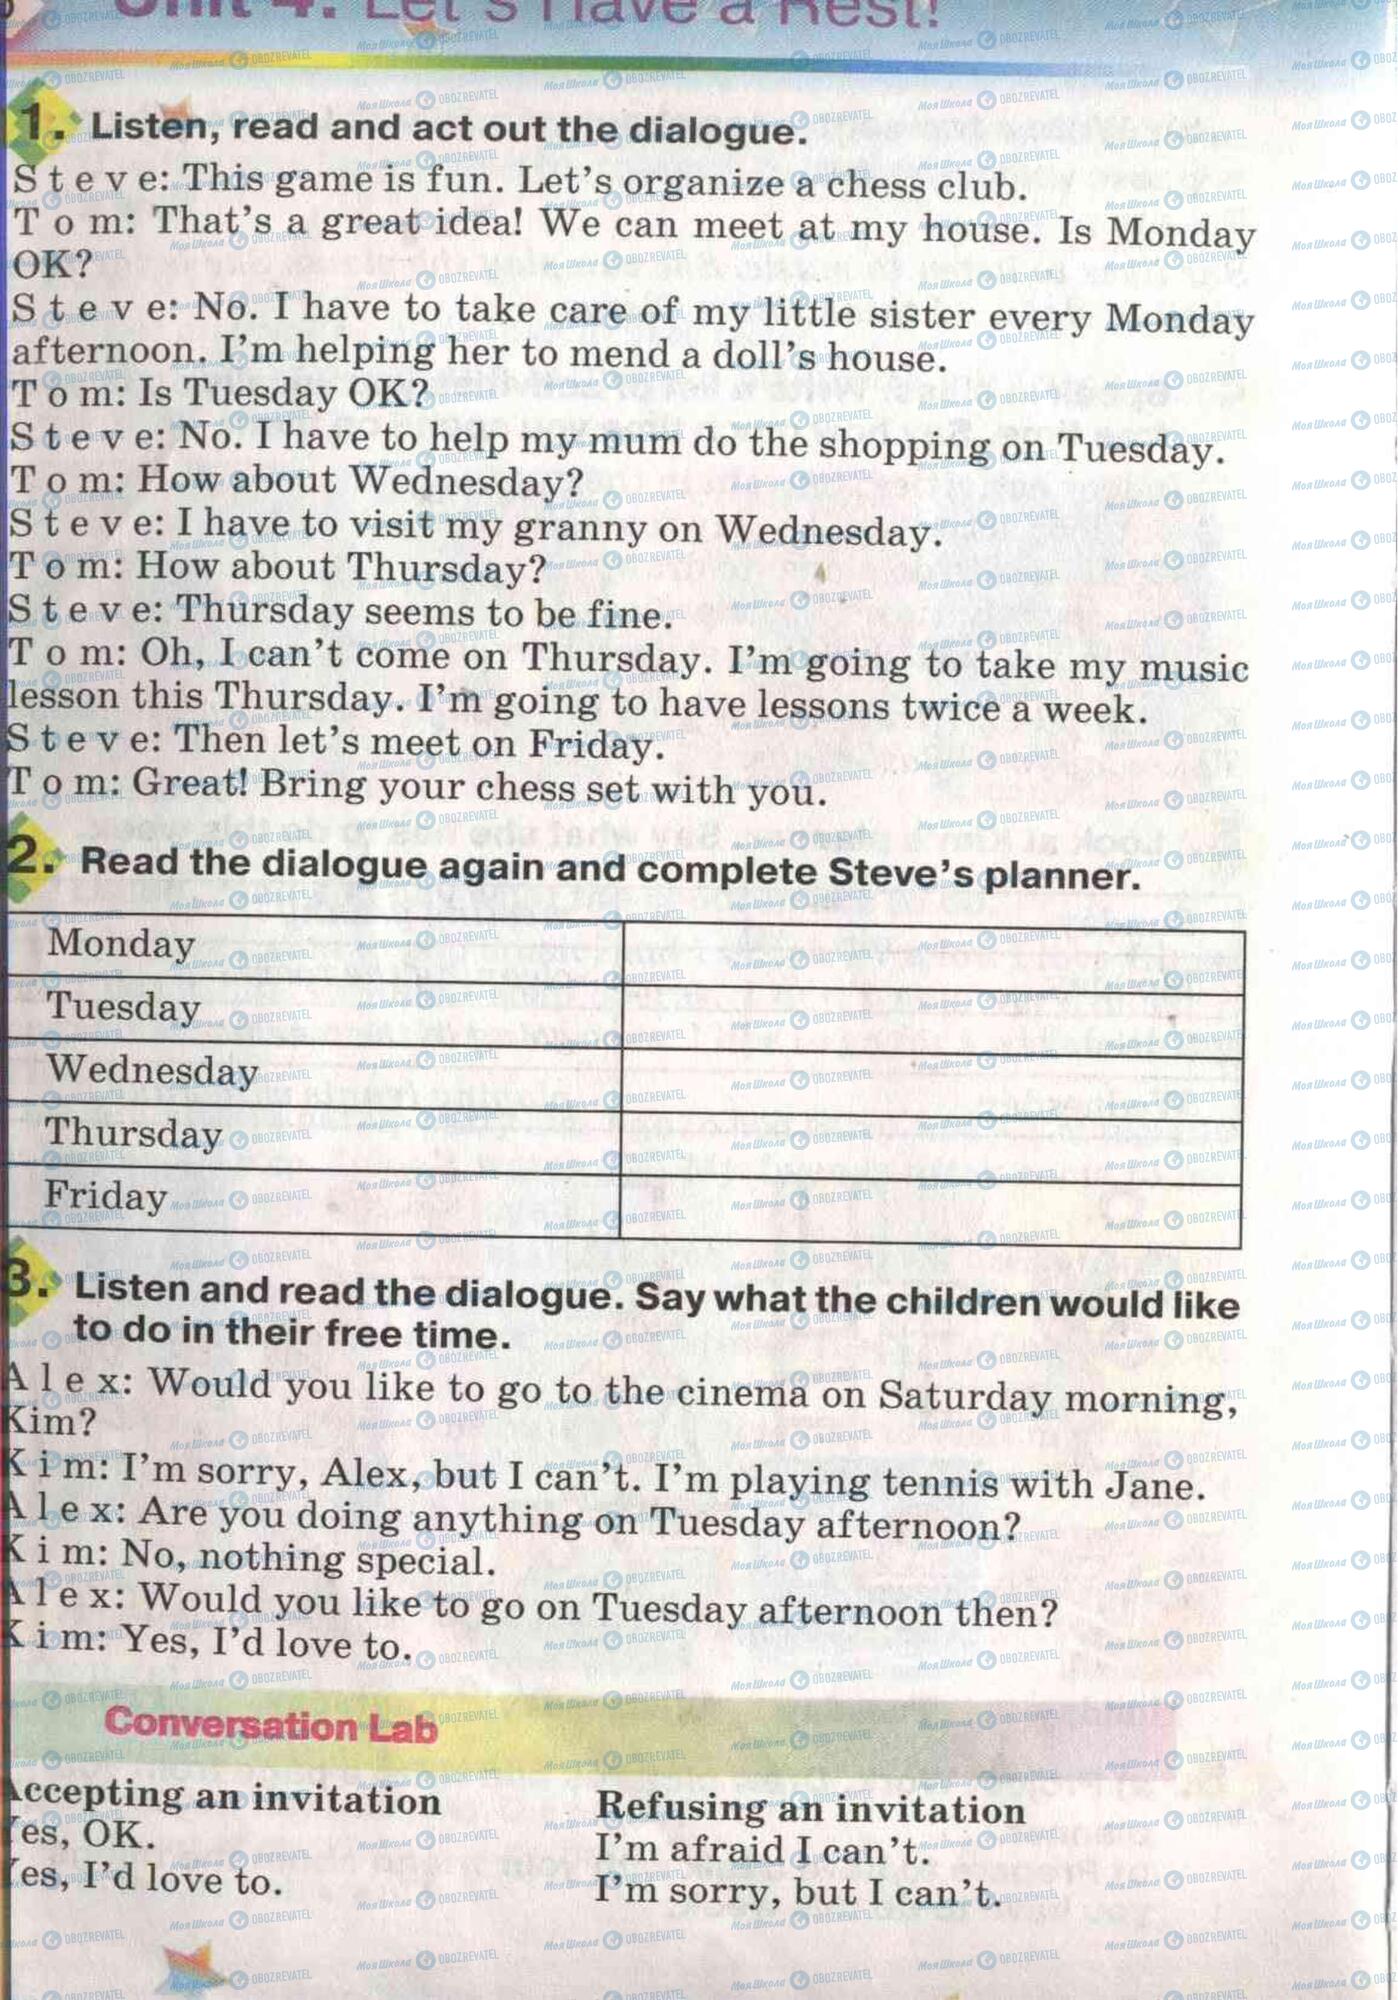 Unit 4. Let's Have a Rest!
1. Listen, read and act out the dialogue.
Steve: This game is fun. Let's organize a chess club.
Tom: That's a great idea! We can meet at my house. Is Monday
OK?
Steve: No. I have to take care of my little sister every Monday
afternoon. I'm helping her to mend a doll's house.
Tom: Is Tuesday OK?
Steve: No. I have to help my mum do the shopping on Tuesday.
Tom: How about Wednesday?
Steve: I have to visit my granny on Wednesday.
Tom: How about Thursday?
Steve: Thursday seems to be fine.
Tom: Oh, I can't come on Thursday. I'm going to take my music
lesson this Thursday. I'm going to have lessons twice a week.
Steve: Then let's meet on Friday.
Tom: Great! Bring your chess set with you.
2. Read the dialogue again and complete Steve's planner.
Monday
Tuesday
Wednesday
Thursday
Friday
3. Listen and read the dialogue. Say what the children would like
to do in their free time.
Alex: Would you like to go to the cinema on Saturday morning,
Kim?
Kim: I'm sorry, Alex, but I can't. I'm playing tennis with Jane.
Alex: Are you doing anything on Tuesday afternoon?
Kim: No, nothing special.
Alex: Would you like to go on Tuesday afternoon then?
Kim: Yes, I'd love to.
Conversation Lab
Accepting an invitation
Yes, OK.
Yes, I'd love to.
Refusing an invitation
I'm afraid I can't.
I'm sorry, but I can't.
Моя Школа OBOZREVATEL